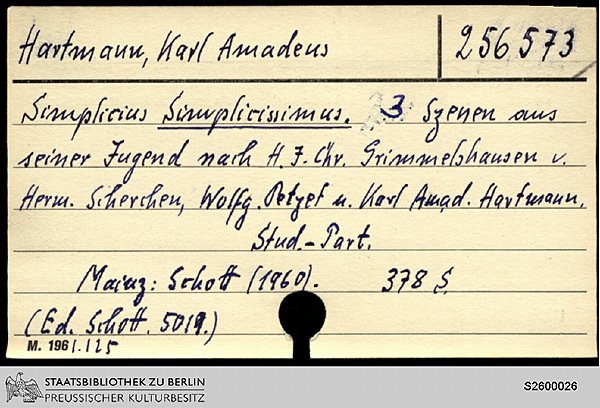 Hartmann, Karl Amadeus
256 573
Simplicius Simplicissimus. 3 Szenen aus
seiner Jugend nach H. J. Chr. Grimmelshausen v.
Herm. Scherchen, Wolfg. Petzet u. Karl Amad. Hartmann.
Stud.-Part.
Mainz: Schott (1960). 378 S.
(Ed. Schott. 5019.)
M. 1961.125
STAATSBIBLIOTHEK ZU BERLIN
PREUSSISCHER KULTURBESITZ
S2600026